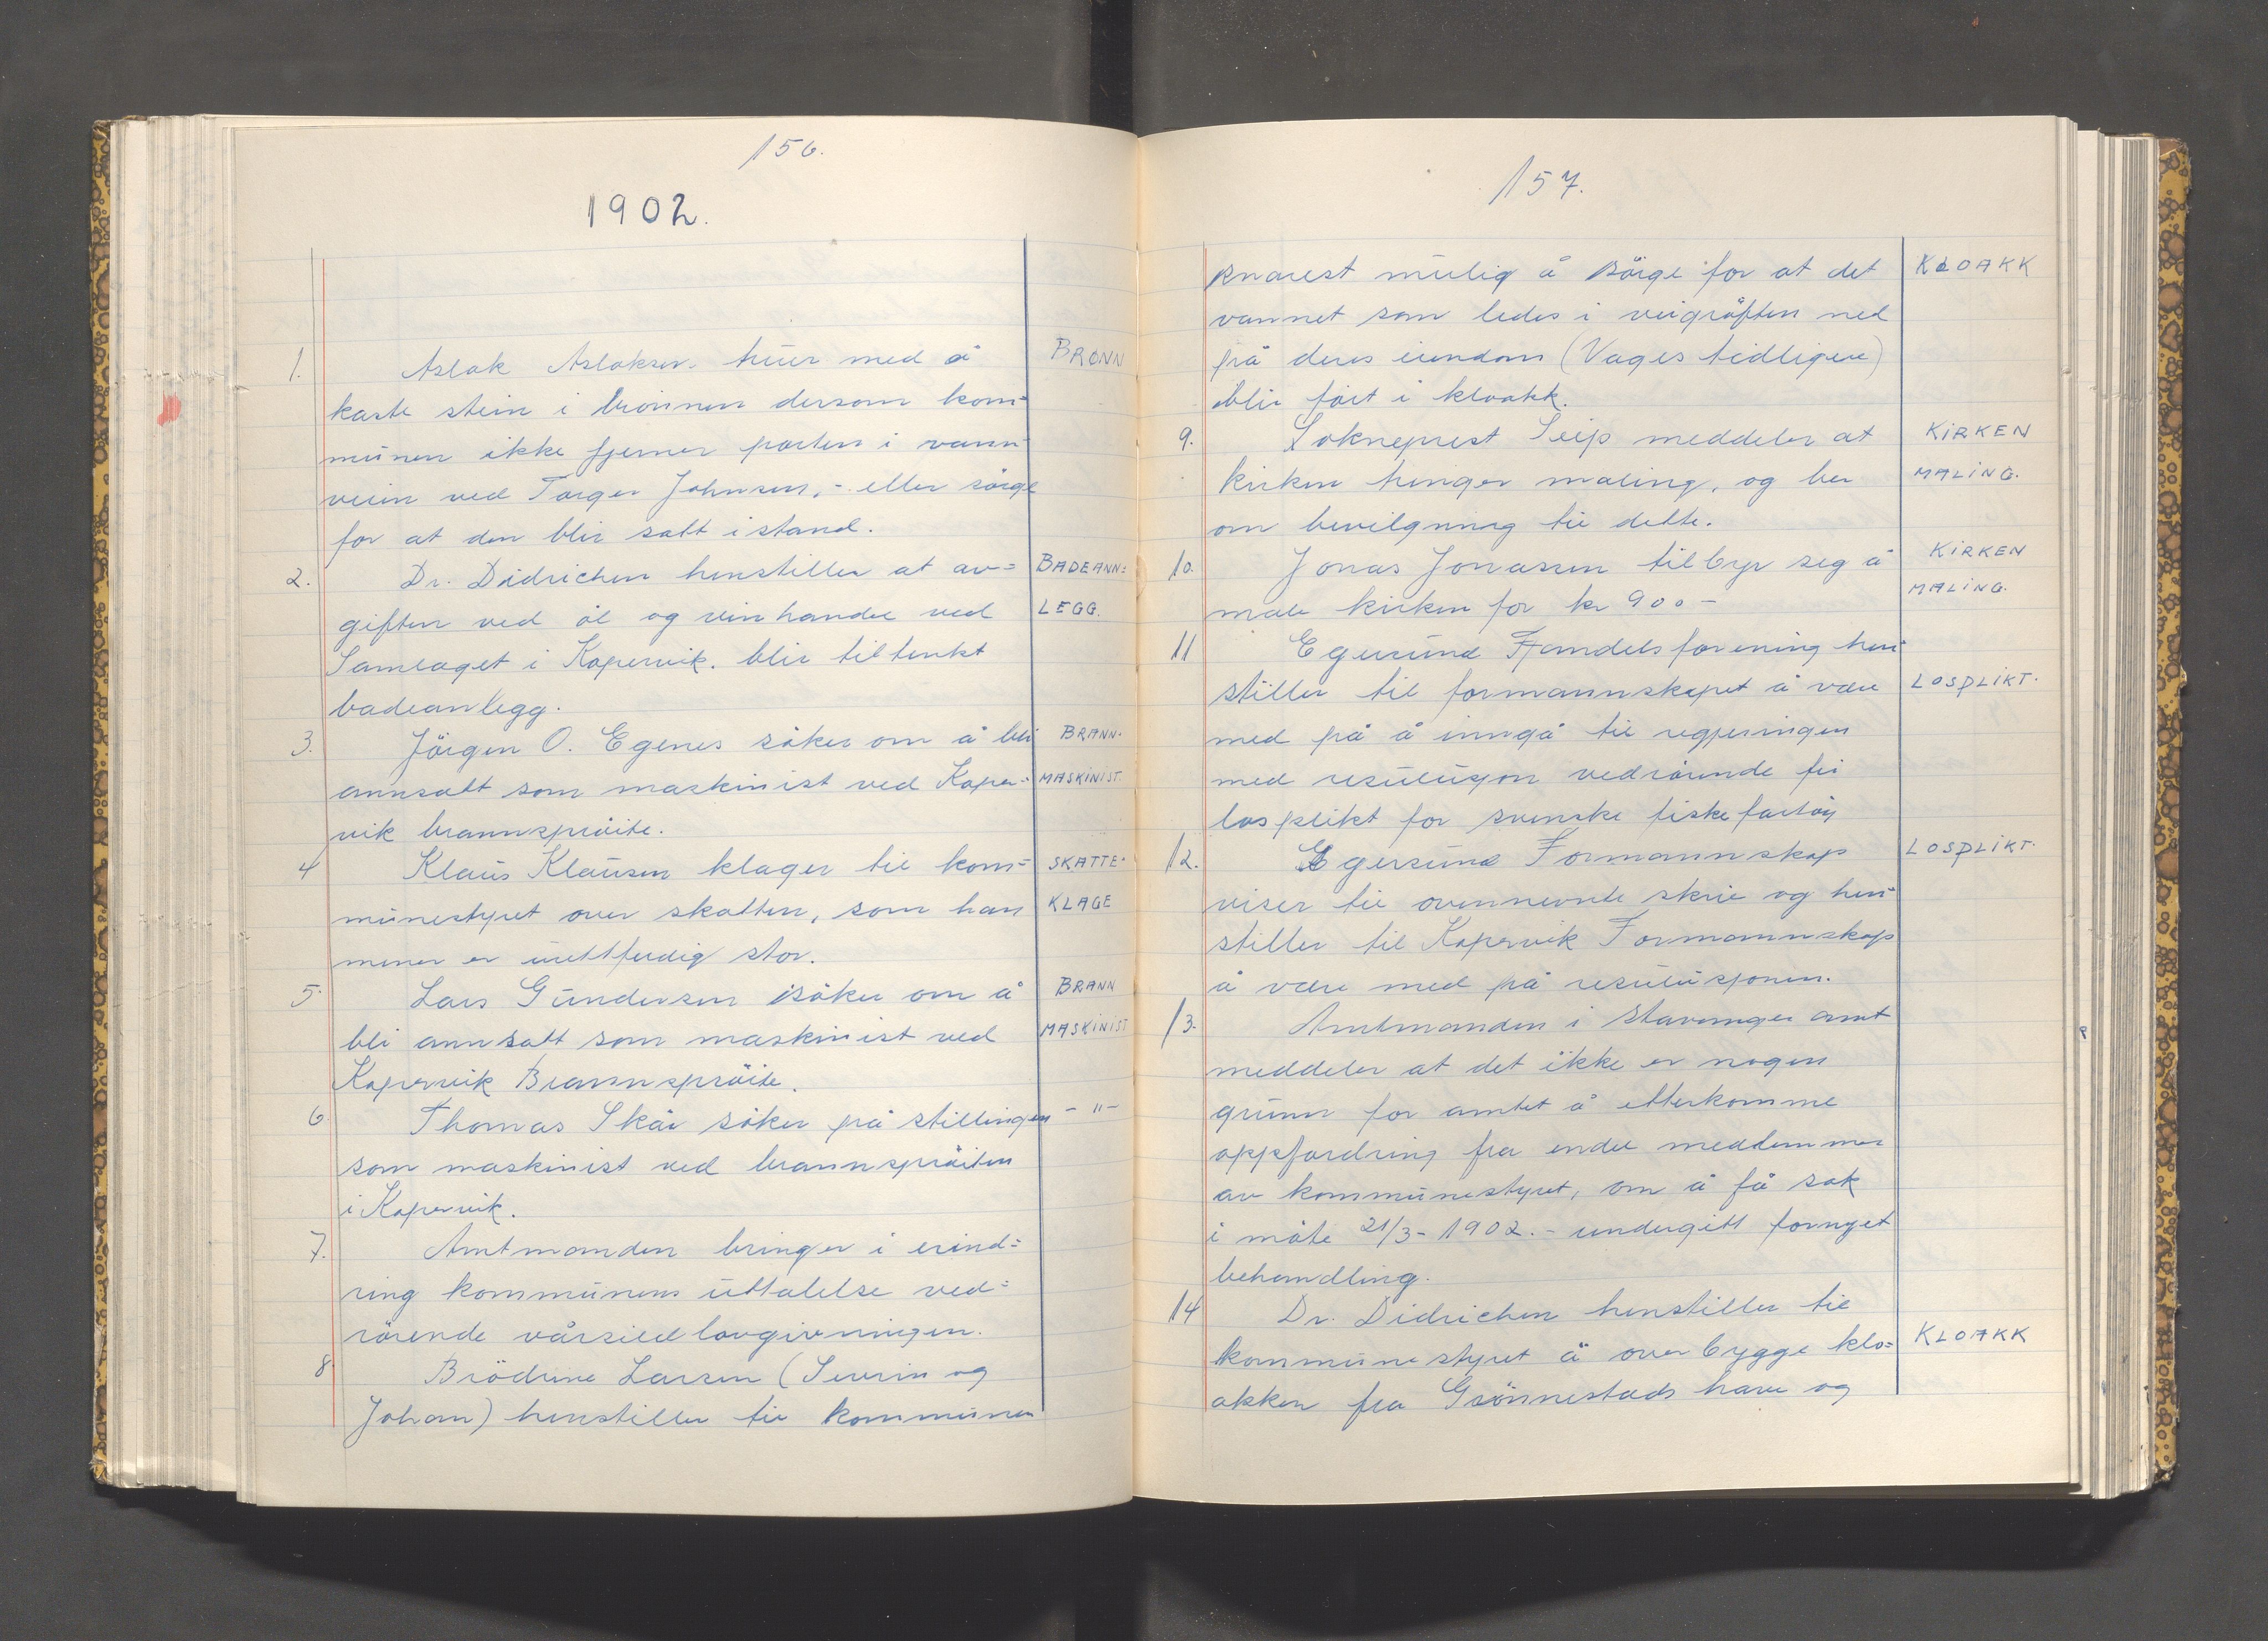 156.
1902.
1. Aslak Aslaksen. truer med å BRÖNN
kaste stein i brönnen dersom kom=
munen ikke fjerner porten i vann-
veien ved Torger Johnsen,- eller sörge
for at den blir satt istand.
2. Dr. Didrichen henstiller at av= BADEANN=
giften ved öl og vin handel ved LEGG.
Samlaget i Kopervik. blir tiltenkt
badeanlegg.
3. Jörgen O. Egenes söker om å bli BRANN-
annsatt som maskinist ved Koper= MASKINIST.
vik brannspröite.
4 Klaus Klausen klager til kom= SKATTE-
munestyret over skatten, som han KLAGE
mener er urettferdig stor.
5. Lars Gundersen söker om å BRANN
bli annsatt som maskinist ved MASKINIST
Kopervik Brannspröite.
6. Thomas Skår söker på stillingen - " -
som maskinist ved brannspröiten
i Kopervik.
7. Amtmanden bringer i erind=
ring kommunens uttalelse ved=
rörende vårsildlovgivningen.
8 Brödrene Larsen (Severin og
Johan) henstiller til kommunen
157.
snarest mulig å sörge for at det KLOAKK
vannet som ledes i veigröften ned
på deres eiendom (Vages tidligere)
blir fört i kloakk.
9. Sokneprest Seip meddeler at KIRKEN
kirken trenger maling, og ber MALING.
om bevilgning til dette.
10. Jonas Jonassen tilbyr seg å KIRKEN
male kirken for kr 900- MALING.
11 Egersund Handelsforening hen-
stiller til formannskapet å være LOSPLIKT.
med på å inngå til regjeringen
med resulusjon vedrörende fri
losplikt for svenske fiskefartöy
12. Egersund Formannskap LOSPLIKT.
viser til ovennevnte skriv og hen-
stiller til Kopervik Formannskap
å være med på resulusjonen.
13. Amtmanden i Stavanger amt
meddeler at det ikke er nogen
grunn for amtet å etterkomme
oppfordring fra endel medlemmer
av kommunestyret, om å få sak
i möte 21/3-1902.- undergitt fornyet
behandling.
14 Dr. Didrichen henstiller til
kommunestyret å overbygge klo= KLOAKK
akken fra Grönnestads have og